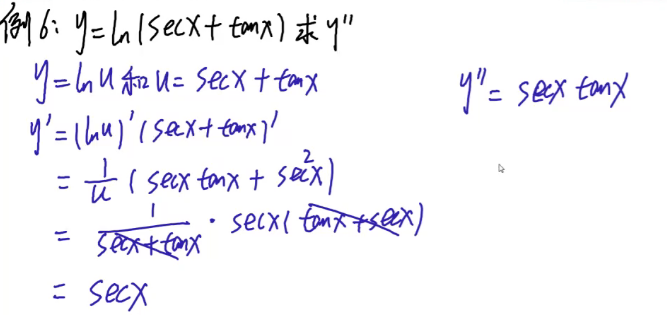 例6: y=ln(secx+tanx) 求 y''
y=lnu 和 u=secx+tanx
y'=(lnu)'(secx+tanx)'
= 1/u (secx tanx + sec²x)
= 1/(secx+tanx) · secx(tanx+secx)
= secx
y''= secx tanx